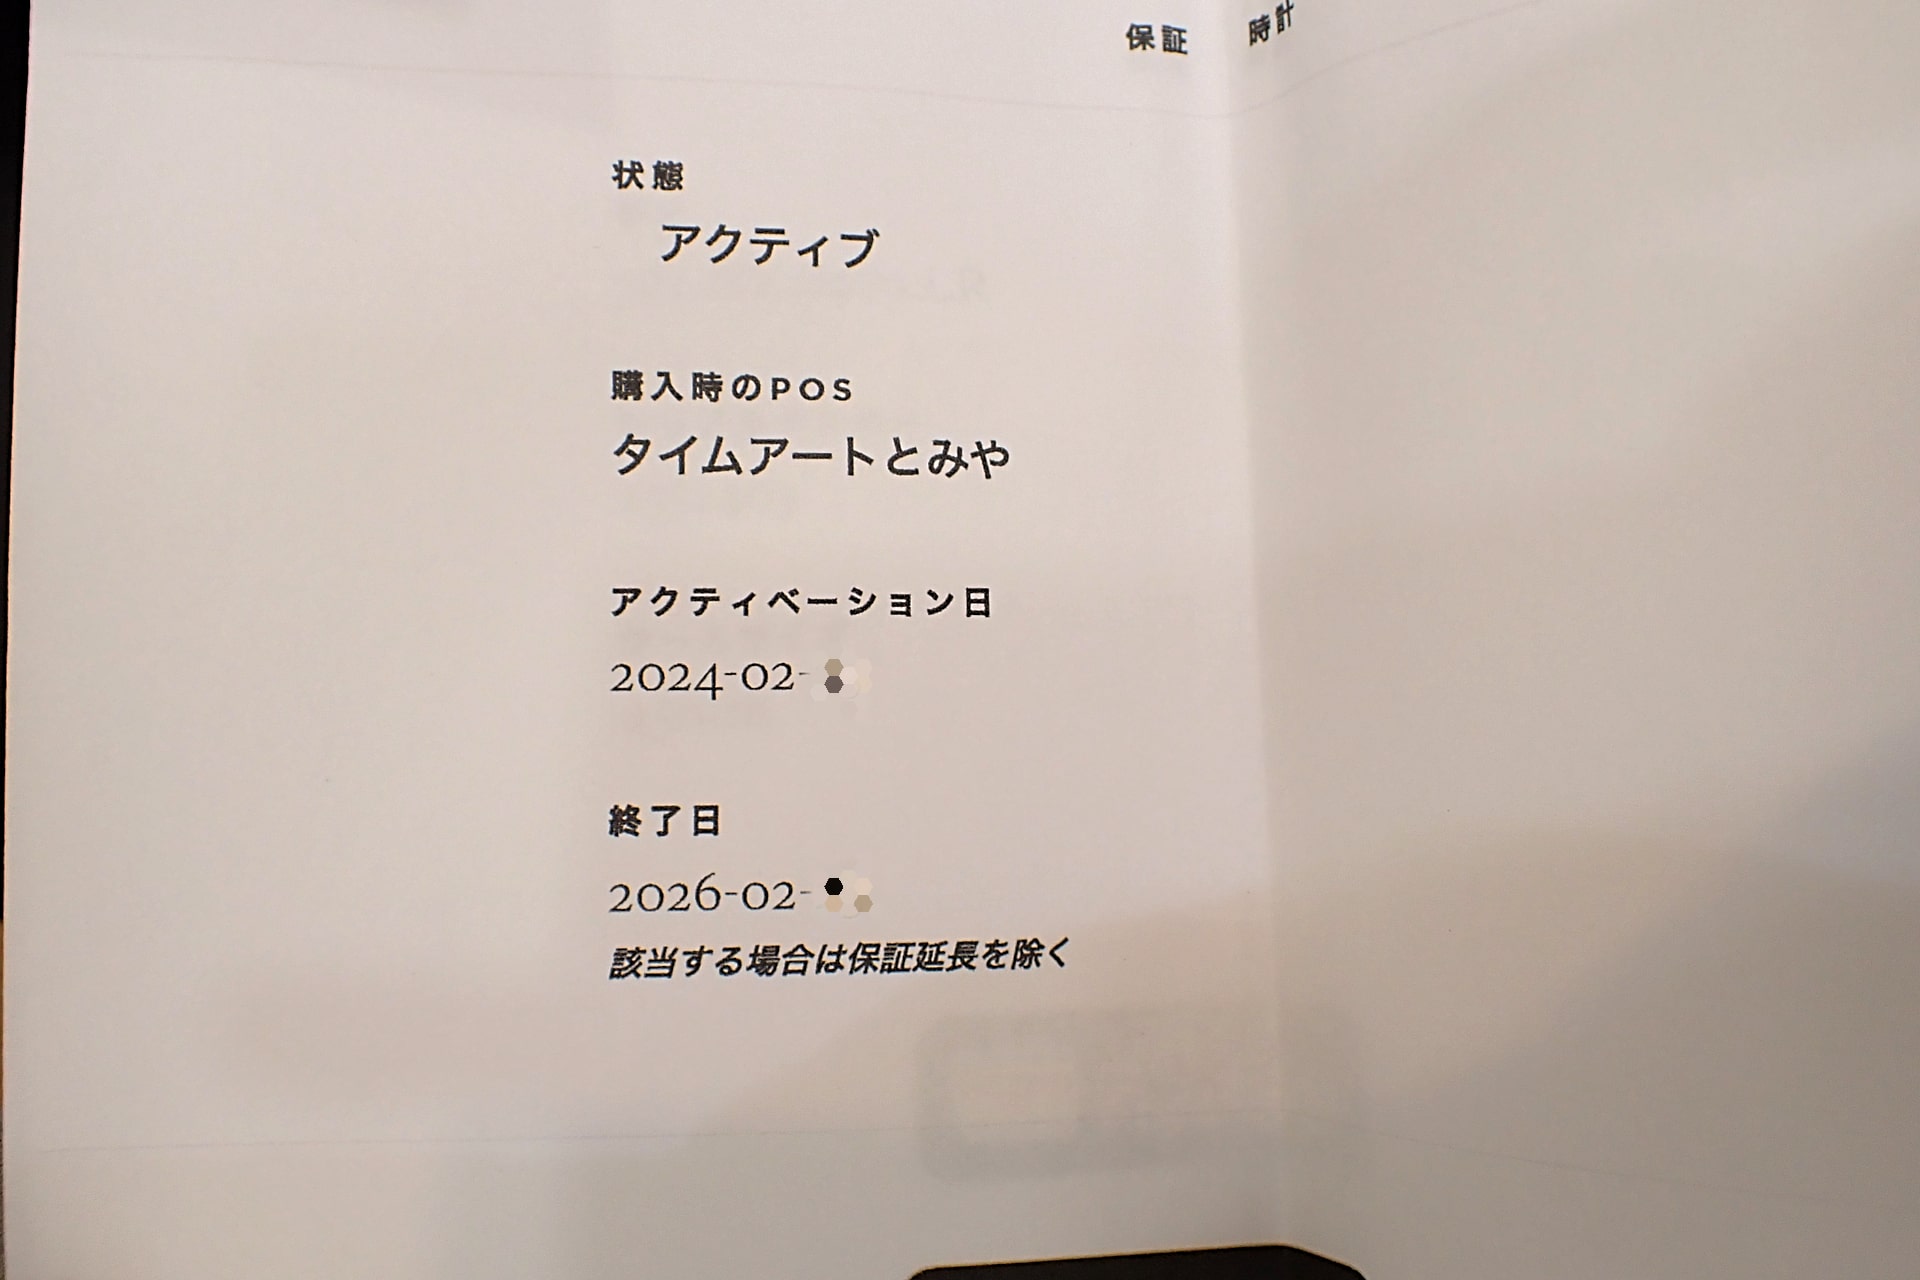 保証 時計
状態
アクティブ
購入時のPOS
タイムアートとみや
アクティベーション日
2024-02-
終了日
2026-02-
該当する場合は保証延長を除く